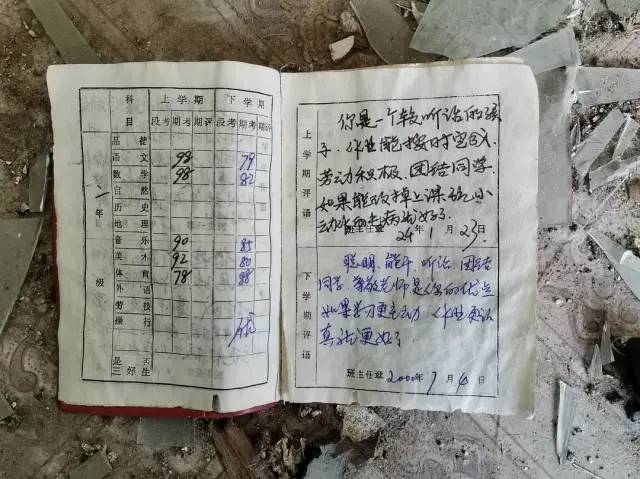 科目 上学期 下学期
段考 期考 期评 段考 期考 期评
一年级
品德
语文 98 79
数学 98 82
自然
历史
地理
音乐 90 85
美术 92 80
体育 78 88
外语
劳技
操行
是否三好生
上学期评语
你是一个较听话的孩
子.作业能按时完成
劳动积极.团结同学.
如果能改掉上课玩小
班主任章 年1月23日
下学期评语
聪明.能干.听话.团结
同学.尊敬老师是你的优点
如果学习更主动 作业更认
真就更好了
班主任章 2000年7月 日